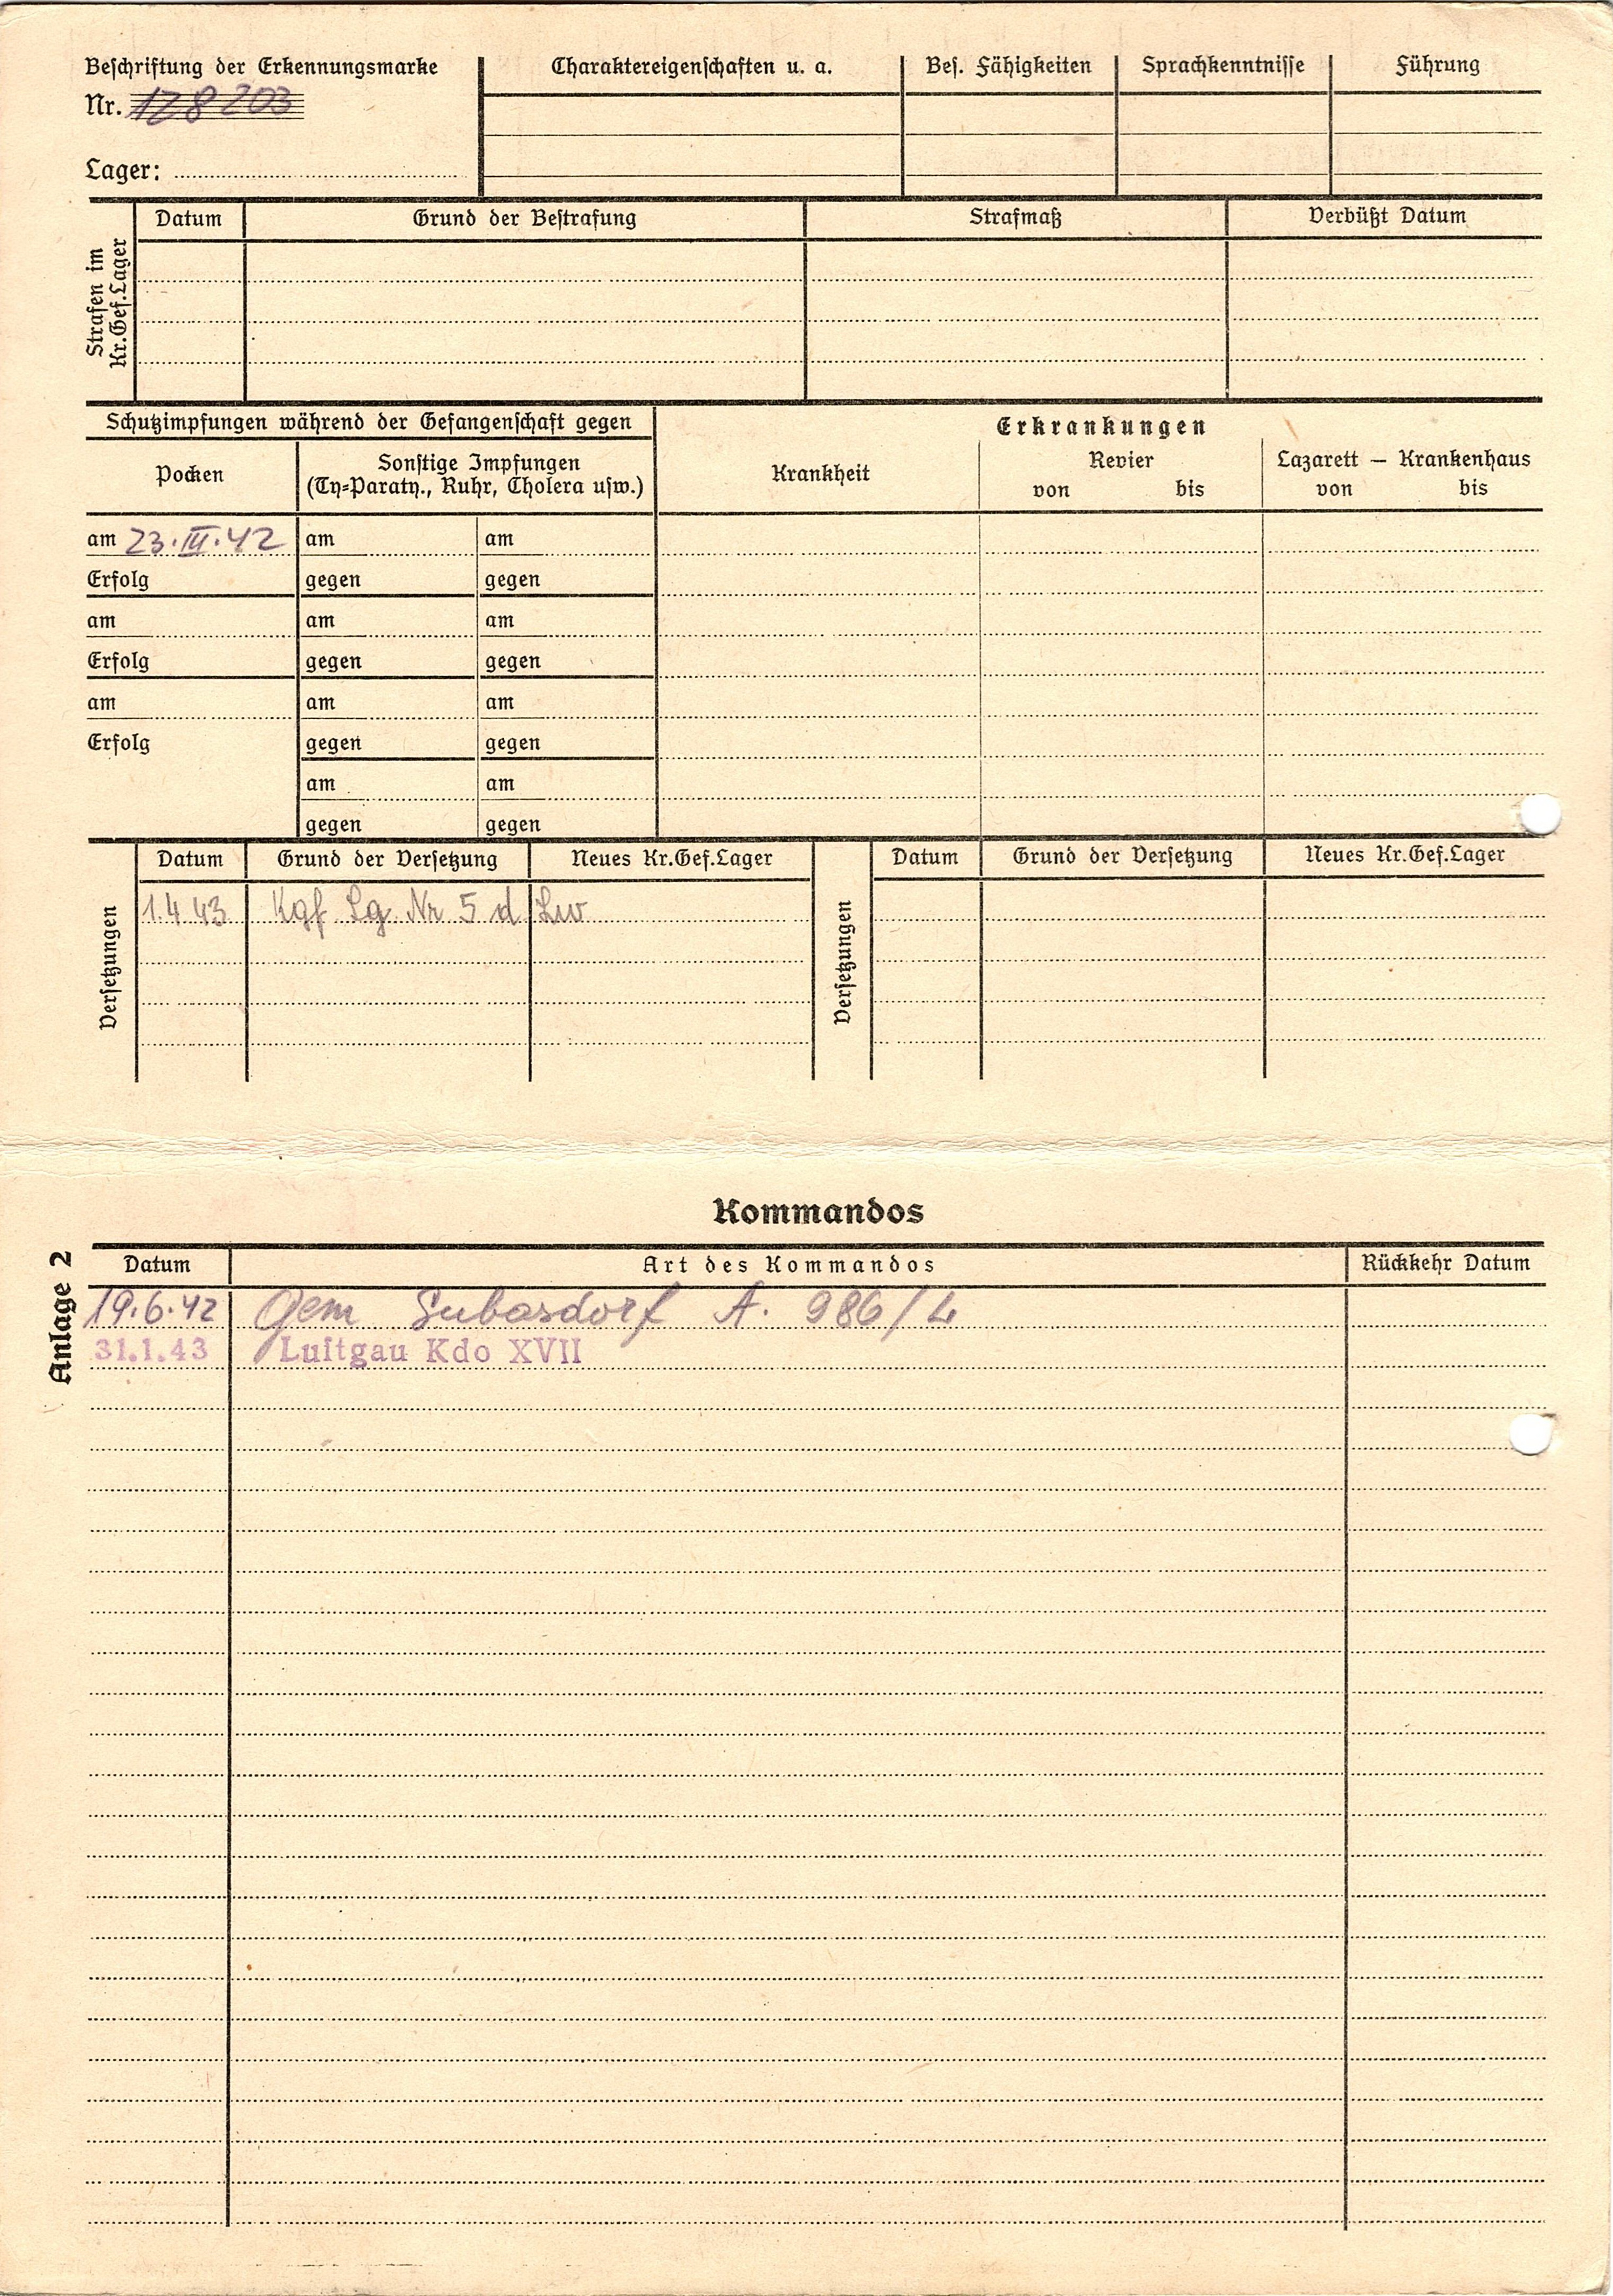 Beschriftung der Erkennungsmarke
Nr. 128203
Lager:
Charaktereigenschaften u. a.
Bes. Fähigkeiten
Sprachkenntnisse
Führung
Strafen im
Kr.Gef.Lager
Datum
Grund der Bestrafung
Strafmaß
Verbüßt Datum
Schutzimpfungen während der Gefangenschaft gegen
Pocken
Sonstige Impfungen
(Ty=Paraty., Ruhr, Cholera usw.)
Erkrankungen
Krankheit
Revier
von bis
Lazarett — Krankenhaus
von bis
am 23.III.42 am am
Erfolg gegen gegen
am am am
Erfolg gegen gegen
am am am
Erfolg gegen gegen
am am
gegen gegen
Versetzungen
Datum Grund der Versetzung Neues Kr.Gef.Lager
1.4 43 Kgf. Lg. Nr 5 d Lw
Versetzungen
Datum Grund der Versetzung Neues Kr.Gef.Lager
Kommandos
Anlage 2
Datum Art des Kommandos Rückkehr Datum
19.6.42 Gem A. 986/L
31.1.43 Luftgau Kdo XVII